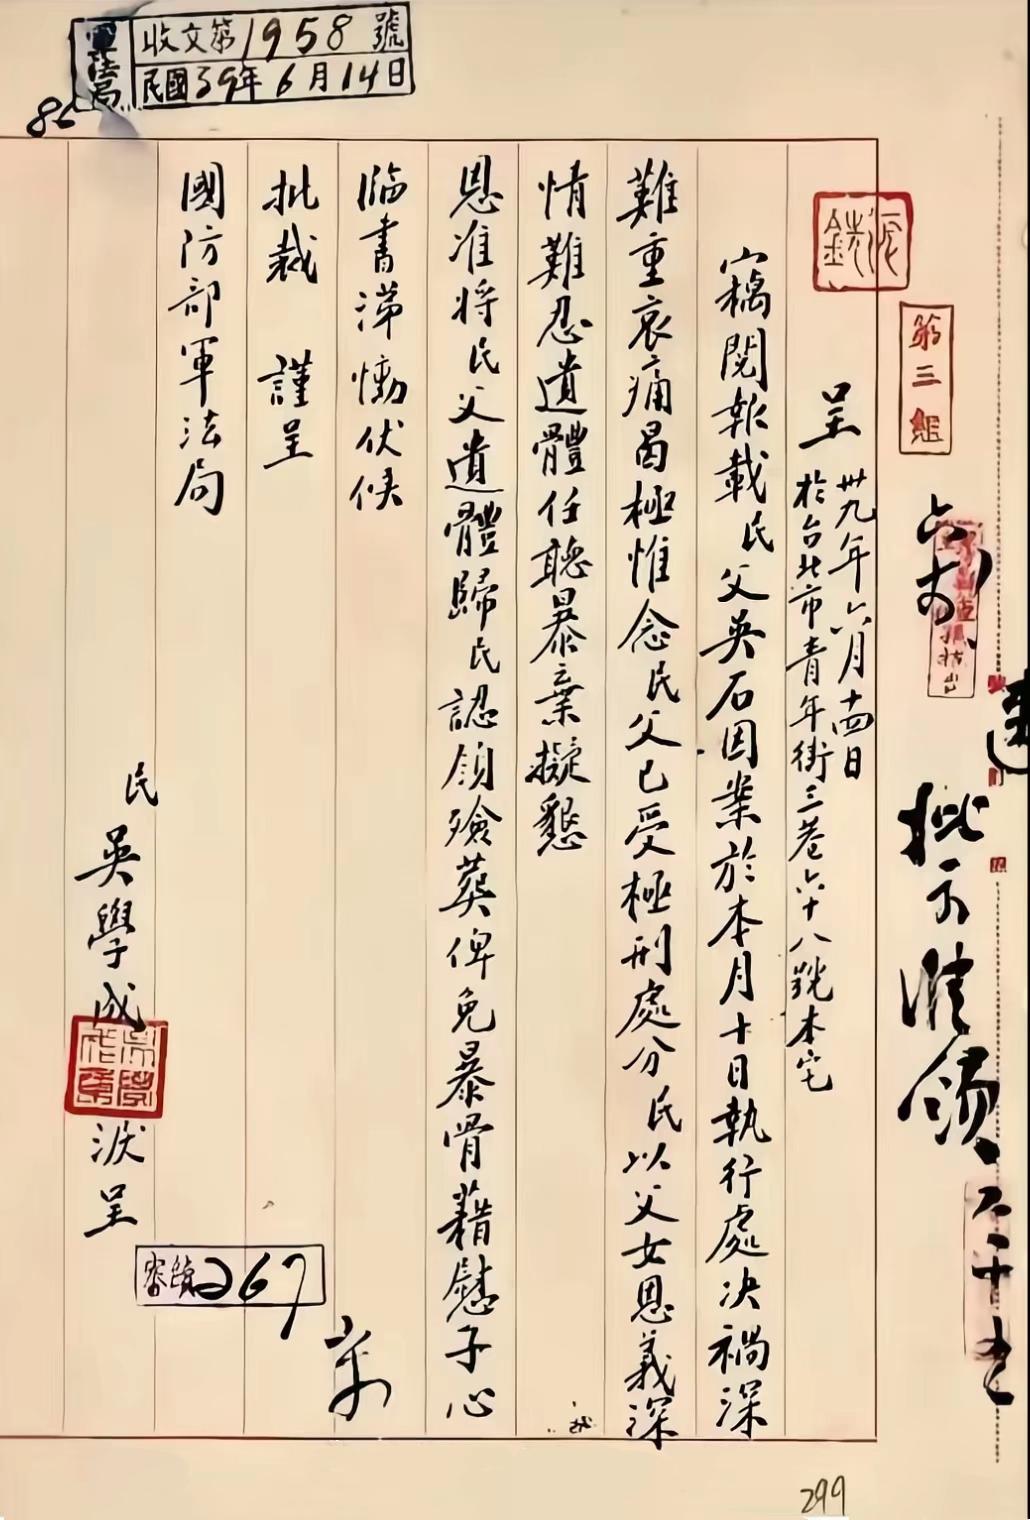 軍法局
收文第1958號
民國39年6月14日
第三組
批示准領
呈
卅九年六月十四日
於台北市青年街三巷六十八號本宅
竊閱報載民父吳石因案於本月十日執行處決禍深
難重哀痛曷極惟念民父已受極刑處分民以父女恩義深
情難忍遺體任聽暴棄擬懇
恩准將民父遺體歸民認領殮葬俾免暴骨藉慰子心
臨書涕慟伏候
批裁 謹呈
國防部軍法局
民
吳學成
淚呈
267
299